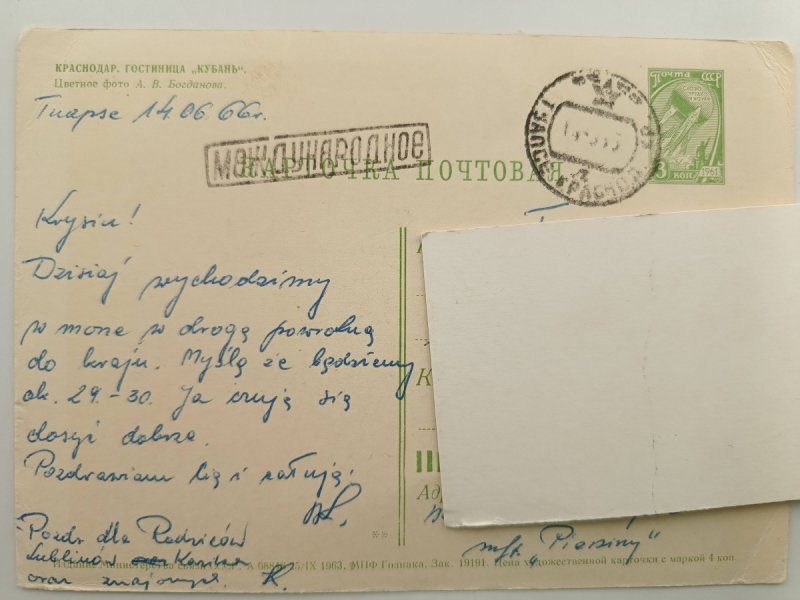 КРАСНОДАР. ГОСТИНИЦА „КУБАНЬ".
Цветное фото А. В. Богданова.
Tuapse 14.06.66r.
МЕЖДУНАРОДНОЕ
КАРТОЧКА ПОЧТОВАЯ
ТУАПСЕ КРАСНОД
ПОЧТА СССР
3 КОП 1961
Krysiu!
Dzisiaj wychodzimy
w morze w drogę powrotną
do kraju. Myślę że będziemy
ok. 29.-30. Ja czuję się
dosyć dobrze.
Pozdrawiam Cię i całuję.
Pozdr dla Rodziców
Lublinów
oraz znajomych. K.
К
Ад
m/t „Pieniny"
Издание Министерства связи 5/IX 1963. МПФ Гознака, Зак. 19191. Цена художественной карточки с маркой 4 коп.